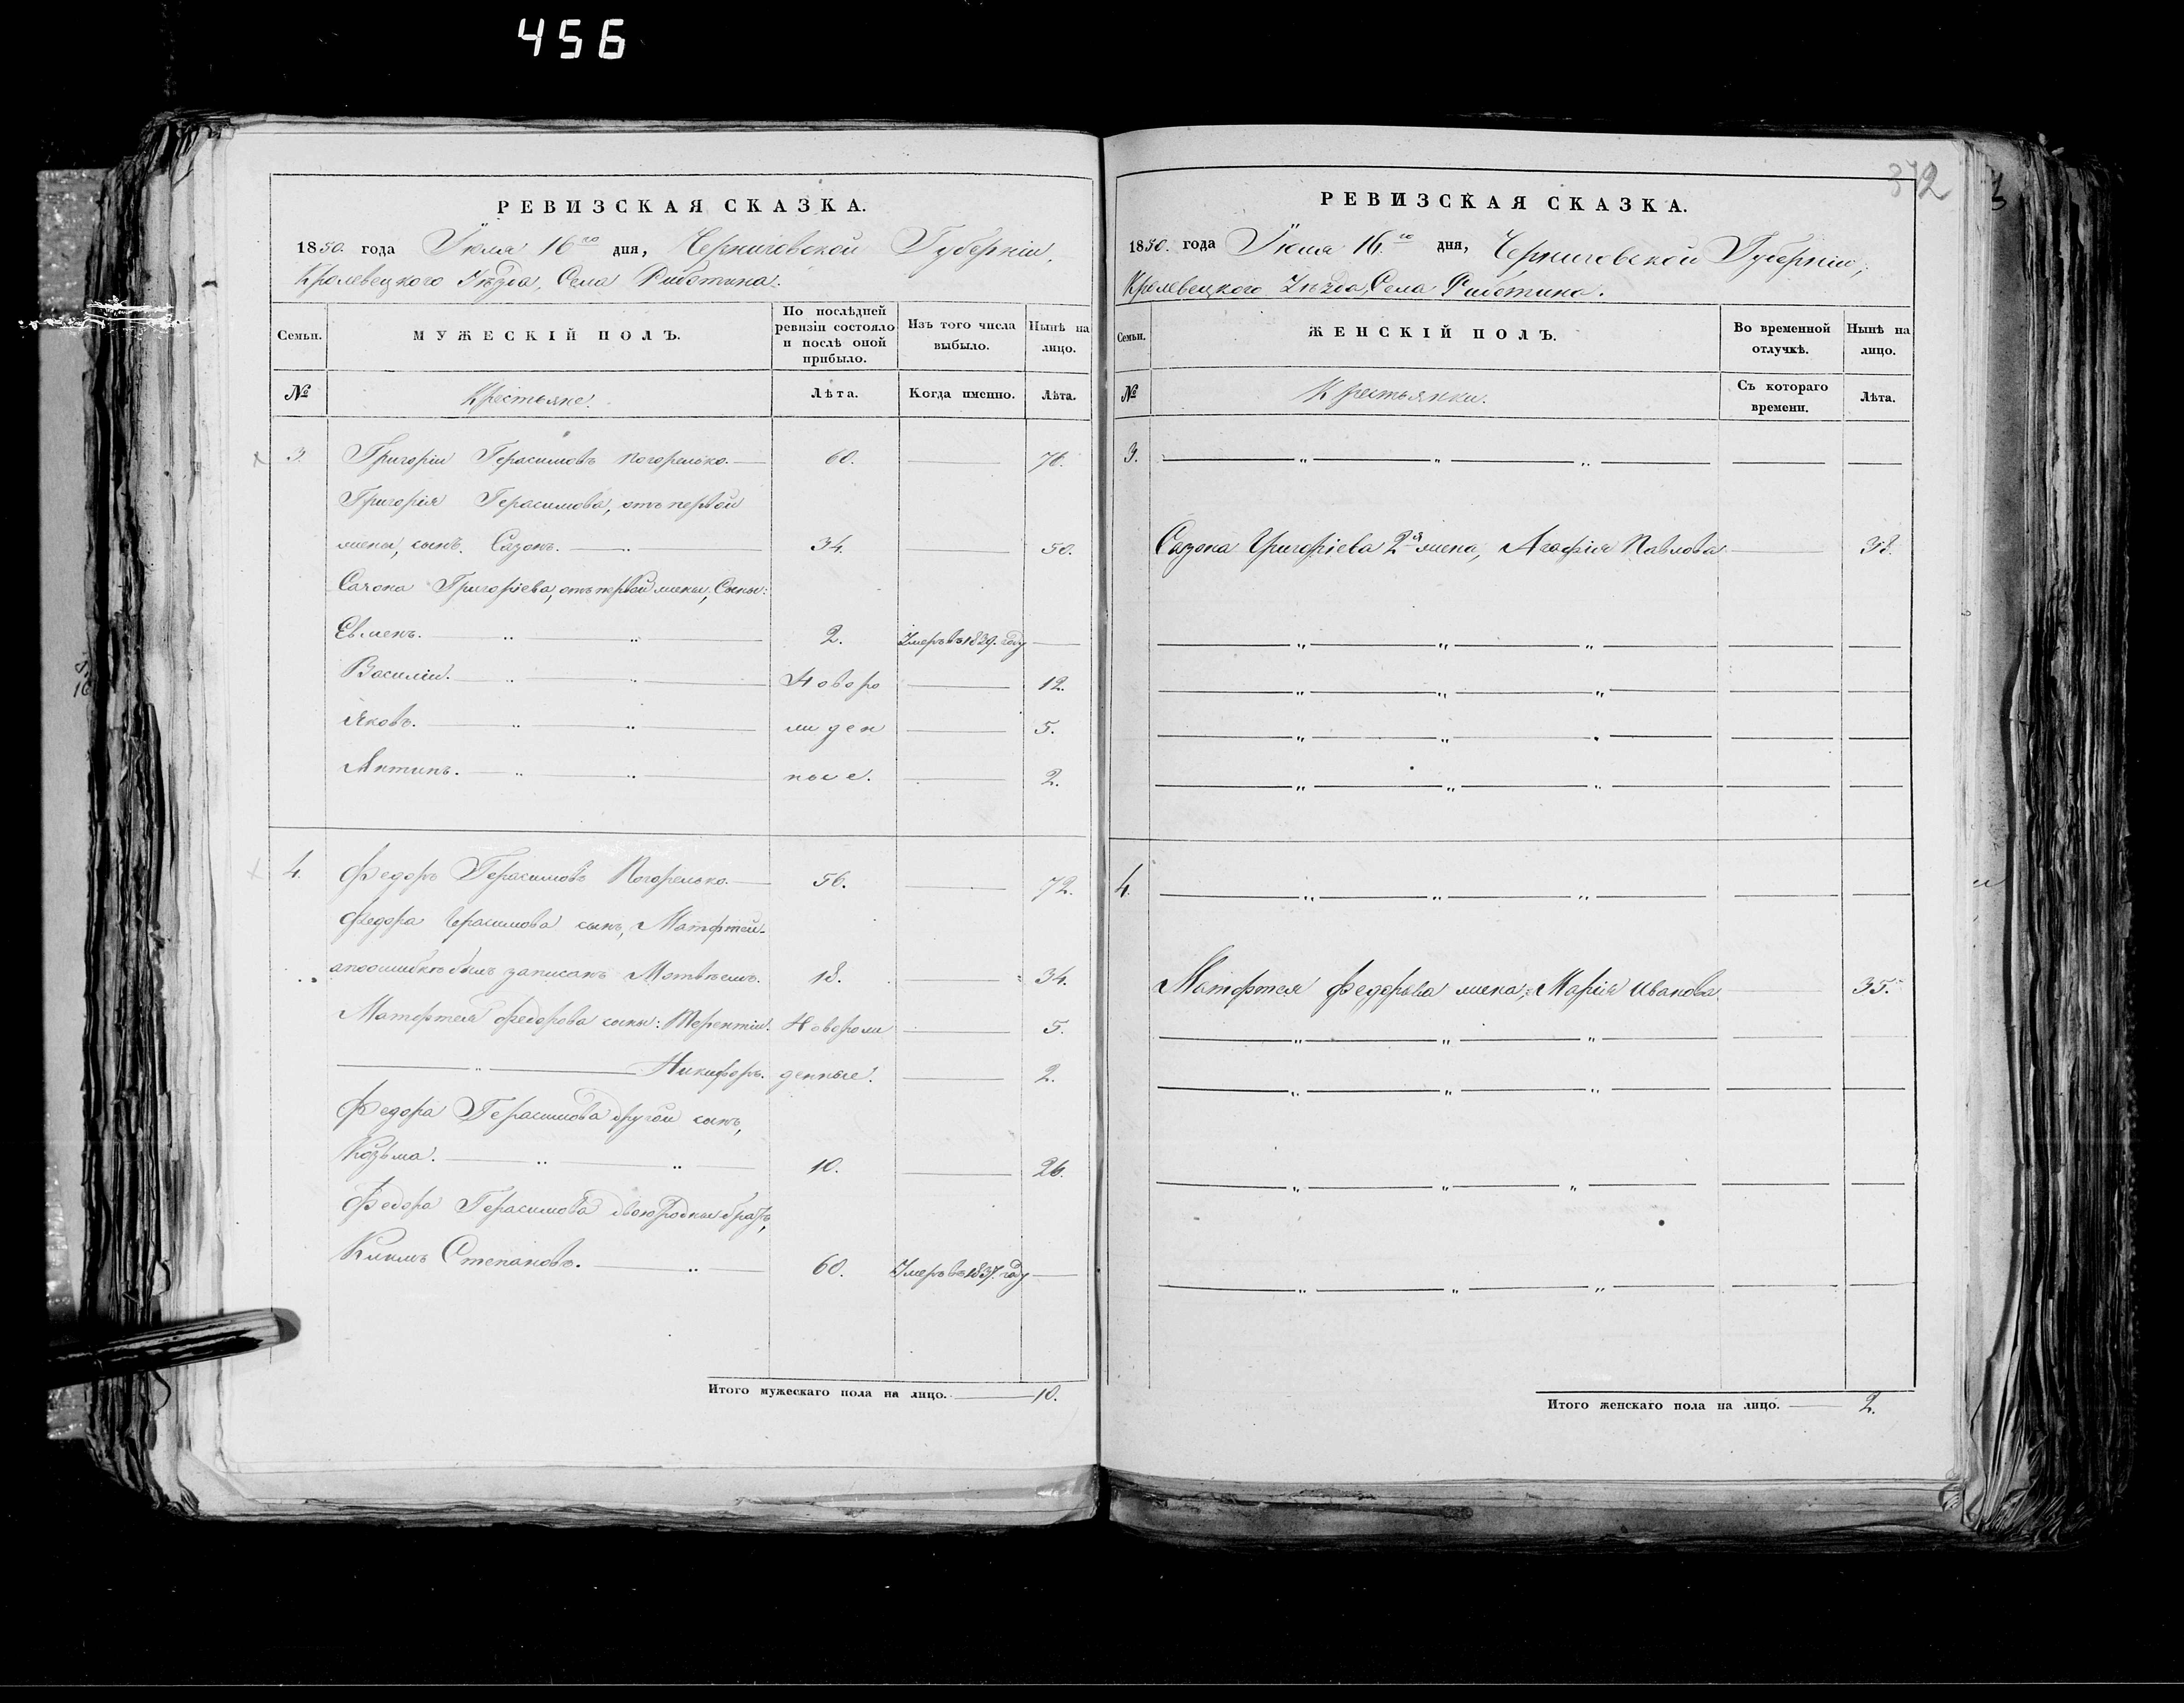 456
372
РЕВИЗСКАЯ СКАЗКА.
1850. года Іюля 16го дня, Черниговской Губерніи,
Кролевецкого Уѣзда, Села Работина.
Семьи.
МУЖЕСКІЙ ПОЛЪ.
По послѣдней ревизіи состояло и послѣ оной прибыло.
Изъ того числа выбыло.
Нынѣ на лицо.
№
Крестьяне.
Лѣта.
Когда именно.
Лѣта.
3. Григорій Герасимовъ Погорелько. 60. 76.
Григорія Герасимова, отъ первой
жены, сынъ. Сазонъ. 34. 50.
Сазона Григоріева, отъ первой жены, Сыны:
Евменъ. 2. Умеръ въ 1839. году
Василій. Новоро 12.
Яковъ. жден 5.
Антипъ. ные. 2.
4. Федоръ Герасимовъ Погорелько. 56. 72.
Федора Герасимова сынъ, Матфтей
а по ошибкѣ былъ записанъ Мотвѣемъ. 18. 34.
Матфтея Федорова сыны: Терентій.Ниворож 5.
Никифоръ. денные. 2.
Федора Герасимова другой сынъ,
Козьма. 10. 26.
Федора Герасимова двоюродный братъ,
Климъ Степановъ. 60. Умеръ въ 1837. году
Итого мужескаго пола на лицо. 10.
РЕВИЗСКАЯ СКАЗКА.
1850. года Іюля 16.го дня, Черниговской Губерніи,
Кролевецкого Уѣзда, Села Работина.
Семьи.
ЖЕНСКІЙ ПОЛЪ.
Во временной отлучкѣ.
Нынѣ на лицо.
№
Крестьянки.
Съ котораго времени.
Лѣта.
3.
Сазона Григоріева 2я жена, Агафія Павлова 38.
4.
Матфтея Федорова жена, Марія Иванова 35.
Итого женскаго пола на лицо. 2.